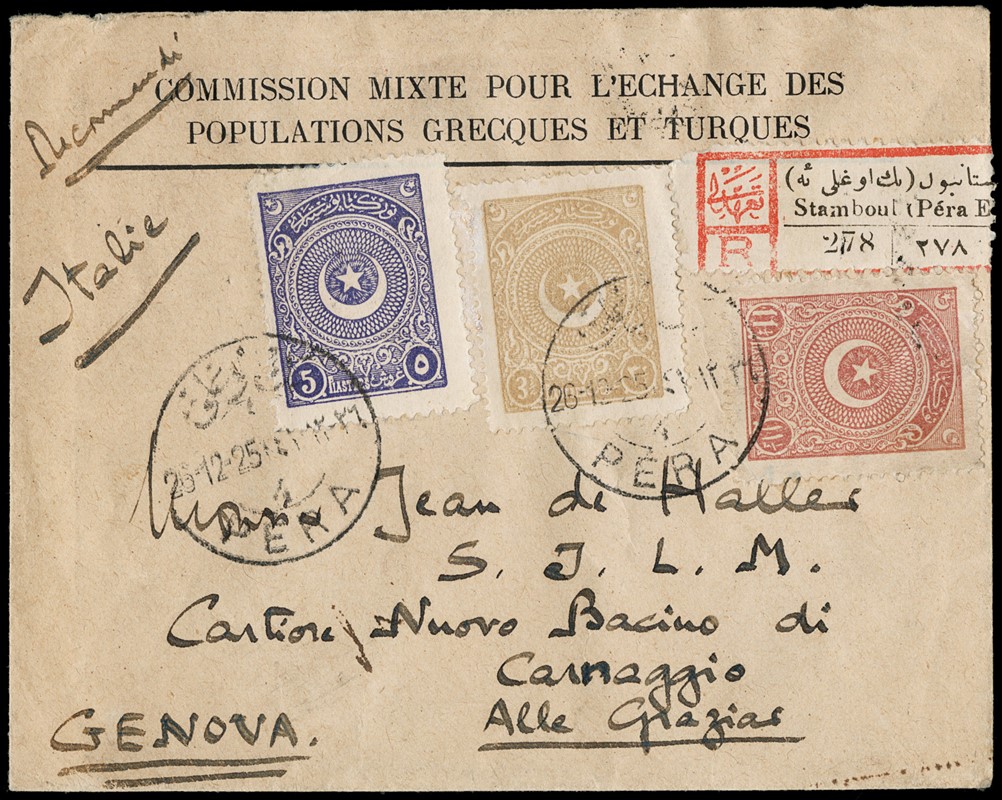 Recommandi
COMMISSION MIXTE POUR L'ECHANGE DES
POPULATIONS GRECQUES ET TURQUES
Italie
تعهدلى
R
ستانبول (بك اوغلى ئه)
Stamboul (Péra E
278 ٢٧٨
5 PIASTRES غروش ٥
3
26-12-25
PÉRA
26-12-25
PÉRA
Jean de Haller
S. I. L. M.
Nuovo Bacino di
Carnaggio
Alle Grazias
GENOVA.